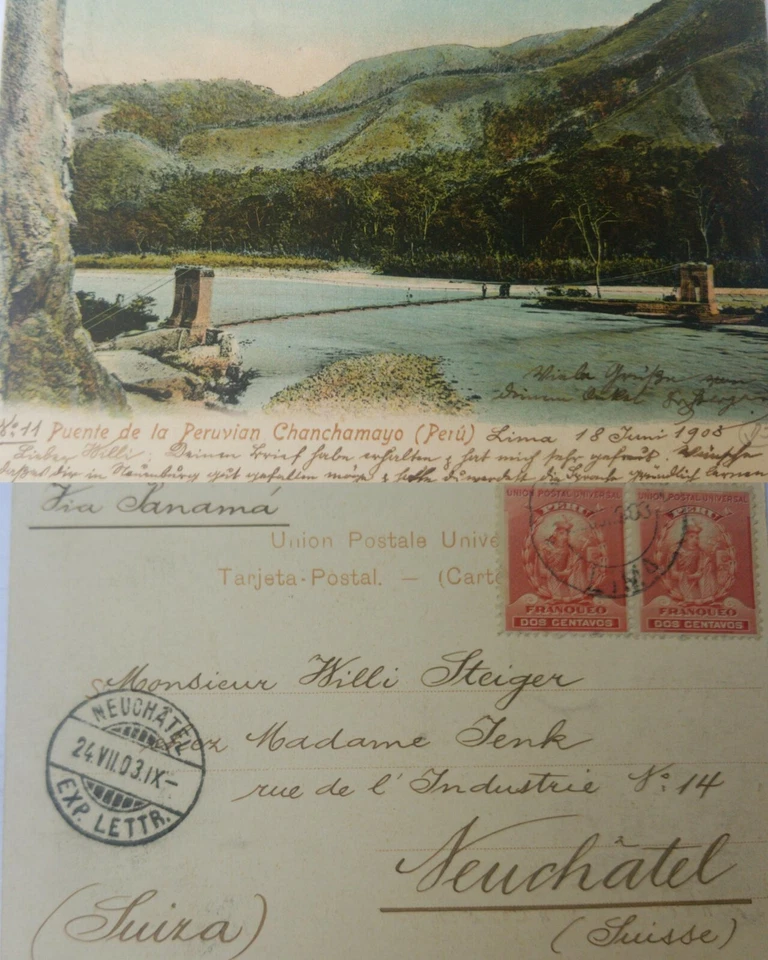 Viele Grüsse von
deinem Onkel
No. 11 Puente de la Peruvian Chanchamayo (Perú) Lima 18 Juni 1903
Lieber Willi; Deinen Brief habe erhalten & hat mich sehr gefreut. Wünsche
dir in Neuenburg gut gefallen möge & hoffe du werdest die Sprache gründlich lernen
Via Panamá
Union Postale Unive
Tarjeta-Postal. — (Carte
UNION POSTAL UNIVERSAL
PERU
FRANQUEO
DOS CENTAVOS
UNION POSTAL UNIVERSAL
PERU
FRANQUEO
DOS CENTAVOS
LIMA
Monsieur Willi Steiger
chez Madame Jenk
rue de l'Industrie No. 14
Neuchâtel
(Suiza)
(Suisse)
NEUCHÂTEL
24.VII.03.IX-
EXP. LETTR.